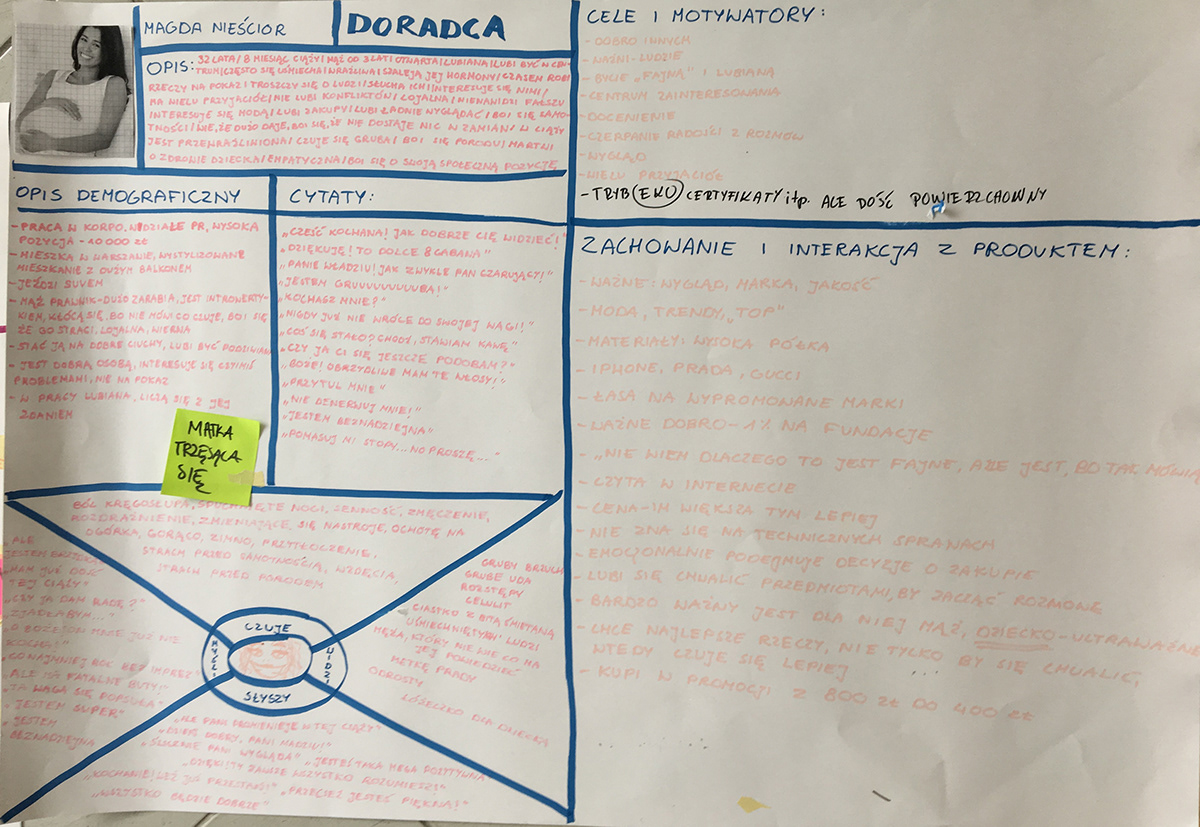 MAGDA NIEŚCIOR
DORADCA
OPIS: 32 LATA / 8 MIESIĄC CIĄŻY / MĄŻ OD 3 LAT / OTWARTA / LUBIANA / LUBI BYĆ W CEN-
TRUM / CZĘSTO SIĘ UŚMIECHA / WRAŻLIWA / SZALEJĄ JEJ HORMONY / CZASEM ROBI
RZECZY NA POKAZ I TROSZCZY SIĘ O LUDZI / SŁUCHA ICH / INTERESUJE SIĘ NIMI /
MA WIELU PRZYJACIÓŁ / NIE LUBI KONFLIKTÓW / LOJALNA / NIENAWIDZI FAŁSZU
INTERESUJE SIĘ MODĄ / LUBI ZAKUPY / LUBI ŁADNIE WYGLĄDAĆ / BOI SIĘ SAMO-
TNOŚCI / WIE, ŻE DUŻO DAJE, BOI SIĘ, ŻE NIE DOSTAJE NIC W ZAMIAN / W CIĄŻY
JEST PRZEWRAŻLIWIONA / CZUJE SIĘ GRUBA / BOI SIĘ PORODU / MARTWI
O ZDROWIE DZIECKA / EMPATYCZNA / BOI SIĘ O SWOJĄ SPOŁECZNĄ POZYCJĘ
OPIS DEMOGRAFICZNY
- PRACA W KORPO, W DZIALE PR, WYSOKA
POZYCJA - 10 000 zł
- MIESZKA W WARSZAWIE, WYSTYLIZOWANE
MIESZKANIE Z DUŻYM BALKONEM
- JEŹDZI SUVEM
- MĄŻ PRAWNIK - DUŻO ZARABIA, JEST INTROWERTY-
KIEM, KŁÓCĄ SIĘ, BO NIE MÓWI CO CZUJE, BOI SIĘ
ŻE GO STRACI, LOJALNA, WIERNA
- STAĆ JĄ NA DOBRE CIUCHY, LUBI BYĆ PODZIWIANA
- JEST DOBRĄ OSOBĄ, INTERESUJE SIĘ CZYIMIŚ
PROBLEMAMI, NIE NA POKAZ
- W PRACY LUBIANA, LICZĄ SIĘ Z JEJ
ZDANIEM
MATKA
TRZĘSĄCA
SIĘ
CYTATY:
„CZEŚĆ KOCHANA! JAK DOBRZE CIĘ WIDZIEĆ!"
„DZIĘKUJĘ! TO DOLCE & GABANA"
„PANIE WŁADZIU! JAK ZWYKLE PAN CZARUJĄCY!"
„JESTEM GRUUUUUUUUBA!"
„KOCHASZ MNIE?"
„NIGDY JUŻ NIE WRÓCĘ DO SWOJEJ WAGI!"
„COŚ SIĘ STAŁO? CHODŹ, STAWIAM KAWĘ"
„CZY JA CI SIĘ JESZCZE PODOBAM?"
„BOŻE! OBRZYDLIWE MAM TE WŁOSY!"
„PRZYTUL MNIE"
„NIE DENERWUJ MNIE!"
„JESTEM BEZNADZIEJNA"
„POMASUJ MI STOPY... NO PROSZĘ..."
BÓL KRĘGOSŁUPA, SPUCHNIĘTE NOGI, SENNOŚĆ, ZMĘCZENIE,
ROZDRAŻNIENIE, ZMIENIAJĄCE SIĘ NASTROJE, OCHOTĘ NA
OGÓRKA, GORĄCO, ZIMNO, PRZYTŁOCZENIE,
STRACH PRZED SAMOTNOŚCIĄ, WZDĘCIA,
STRACH PRZED PORODEM
ALE
JESTEM
MAM JUŻ DOŚĆ
TEJ CIĄŻY"
„CZY JA DAM RADĘ?"
ZJADŁABYM..."
O BOŻE! ON MNIE JUŻ NIE
KOCHA!"
CO NAJMNIEJ ROK BEZ IMPREZ"
„ALE MA FATALNE BUTY!"
„TA WAGA SIĘ POPSUŁA"
„JESTEM SUPER"
„JESTEM
BEZNADZIEJNA
CZUJE
MYŚLI
WIDZI
SŁYSZY
GRUBY BRZUCH
GRUBE UDA
ROZSTĘPY
CELULIT
CIASTKO Z BITĄ ŚMIETANĄ
UŚMIECHNIĘTYCH LUDZI
MĘŻA, KTÓRY NIE WIE CO MA
JEJ POWIEDZIEĆ
METKĘ PRADY
ODROSTY
ŁÓŻECZKO DLA DZIECKA
„ALE PANI PROMIENIEJE W TEJ CIĄŻY"
„DZIEŃ DOBRY, PANI MADZIU!"
„ŚLICZNIE PANI WYGLĄDA" „JESTEŚ TAKA MEGA POZYTYWNA
„DZIĘKI! TY ZAWSZE WSZYSTKO ROZUMIESZ!"
„KOCHANIE! WEŹ JUŻ PRZESTAŃ!" „PRZECIEŻ JESTEŚ PIĘKNA!"
„WSZYSTKO BĘDZIE DOBRZE"
CELE I MOTYWATORY:
- DOBRO INNYCH
- WAŻNI - LUDZIE
- BYCIE „FAJNĄ" I LUBIANĄ
- CENTRUM ZAINTERESOWANIA
- DOCENIENIE
- CZERPANIE RADOŚCI Z ROZMÓW
- WYGLĄD
- WIELU PRZYJACIÓŁ
- TRYB EKO CERTYFIKATY itp. ALE DOŚĆ POWIERZCHOWNY
ZACHOWANIE I INTERAKCJA Z PRODUKTEM:
- WAŻNE: WYGLĄD, MARKA, JAKOŚĆ
- MODA, TRENDY, „TOP"
- MATERIAŁY: WYSOKA PÓŁKA
- IPHONE, PRADA, GUCCI
- ŁASA NA WYPROMOWANE MARKI
- WAŻNE DOBRO - 1% NA FUNDACJE
- „NIE WIEM DLACZEGO TO JEST FAJNE, ALE JEST, BO TAK MÓWIĄ
- CZYTA W INTERNECIE
- CENA - IM WIĘKSZA TYM LEPIEJ
- NIE ZNA SIĘ NA TECHNICZNYCH SPRAWACH
- EMOCJONALNIE PODEJMUJE DECYZJE O ZAKUPIE
- LUBI SIĘ CHWALIĆ PRZEDMIOTAMI, BY ZACZĄĆ ROZMOWĘ
- BARDZO WAŻNY JEST DLA NIEJ MĄŻ, DZIECKO - ULTRAWAŻNE
- CHCE NAJLEPSZE RZECZY, NIE TYLKO BY SIĘ CHWALIĆ,
WTEDY CZUJE SIĘ LEPIEJ
- KUPI W PROMOCJI Z 800 zł DO 400 zł